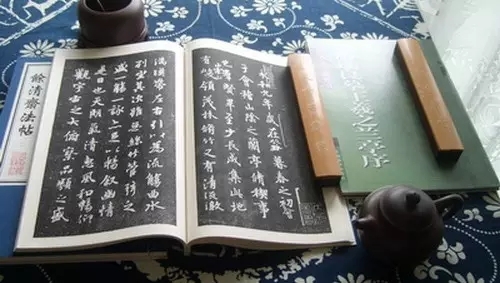 永和九年歲在癸丑暮春之初會
于會稽山陰之蘭亭脩稧事
也羣賢畢至少長咸集此地
有崇山峻領茂林脩竹又有清流激
湍暎帶左右引以為流觴曲水
列坐其次雖無絲竹管弦之
盛一觴一詠亦足以暢敘幽情
是日也天朗氣清惠風和暢仰
觀宇宙之大俯察品類之盛
餘清齋法帖
王羲之蘭亭序